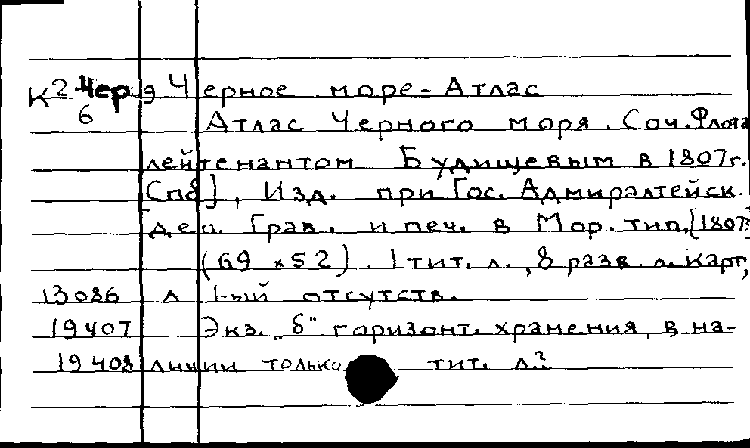 К 2 Чер 9 Черное море - Атлас
6 Атлас Черного моря. Соч. Флота
лейтенантом Будищевым в 1807г.
[Спб], Изд. при Гос. Адмиралтейск.
деп. Грав. и печ. в Мор. тип. [1807]
(69 x 52). 1 тит. л., 8 разв. л. карт,
13086 л 1-ый отсутств.
19407 Экз. "б" горизонт. хранения, в на-
19408 личии только тит. л.